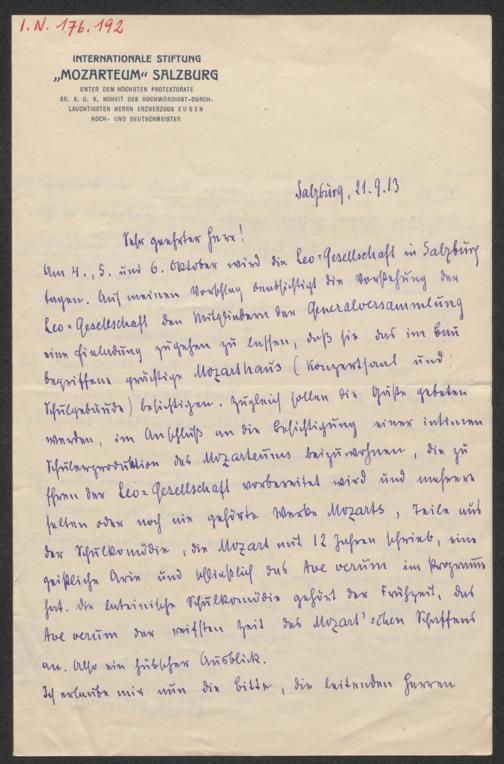 I.N. 176.192
INTERNATIONALE STIFTUNG
„MOZARTEUM“ SALZBURG
UNTER DEM HÖCHSTEN PROTEKTORATE
SR. K. U. K. HOHEIT DES HOCHWÜRDIGST-DURCH-
LAUCHTIGSTEN HERRN ERZHERZOGS EUGEN
HOCH- UND DEUTSCHMEISTER
Salzburg, 21.9.13
Sehr geehrter Herr!
Am 4., 5. und 6. Oktober wird die Leo-Gesellschaft in Salzburg
tagen. Auf meinen Vorschlag beabsichtigt die Vorstehung der
Leo-Gesellschaft den Mitgliedern der Generalversammlung
eine Einladung zugehen zu lassen, daß sie das im Bau
begriffene prächtige Mozarthaus (Konzertsaal und
Schulgebäude) besichtigen. Zugleich sollen die Gäste gebeten
werden, im Anschluß an die Besichtigung einer intimen
Schülerproduktion des Mozarteums beizuwohnen, die zu
Ehren der Leo-Gesellschaft vorbereitet wird und mehrere
selten oder noch nie gehörte Werke Mozarts, Teile aus
der Schulkomödie, die Mozart mit 12 Jahren schrieb, eine
geistliche Arie und schließlich das Ave verum im Programm
hat. Die lateinische Schulkomödie gehört der Frühzeit, das
Ave verum der reifsten Zeit des Mozart'schen Schaffens
an. Also ein hübscher Ausblick.
Ich erlaube mir nun die Bitte, die leitenden Herren